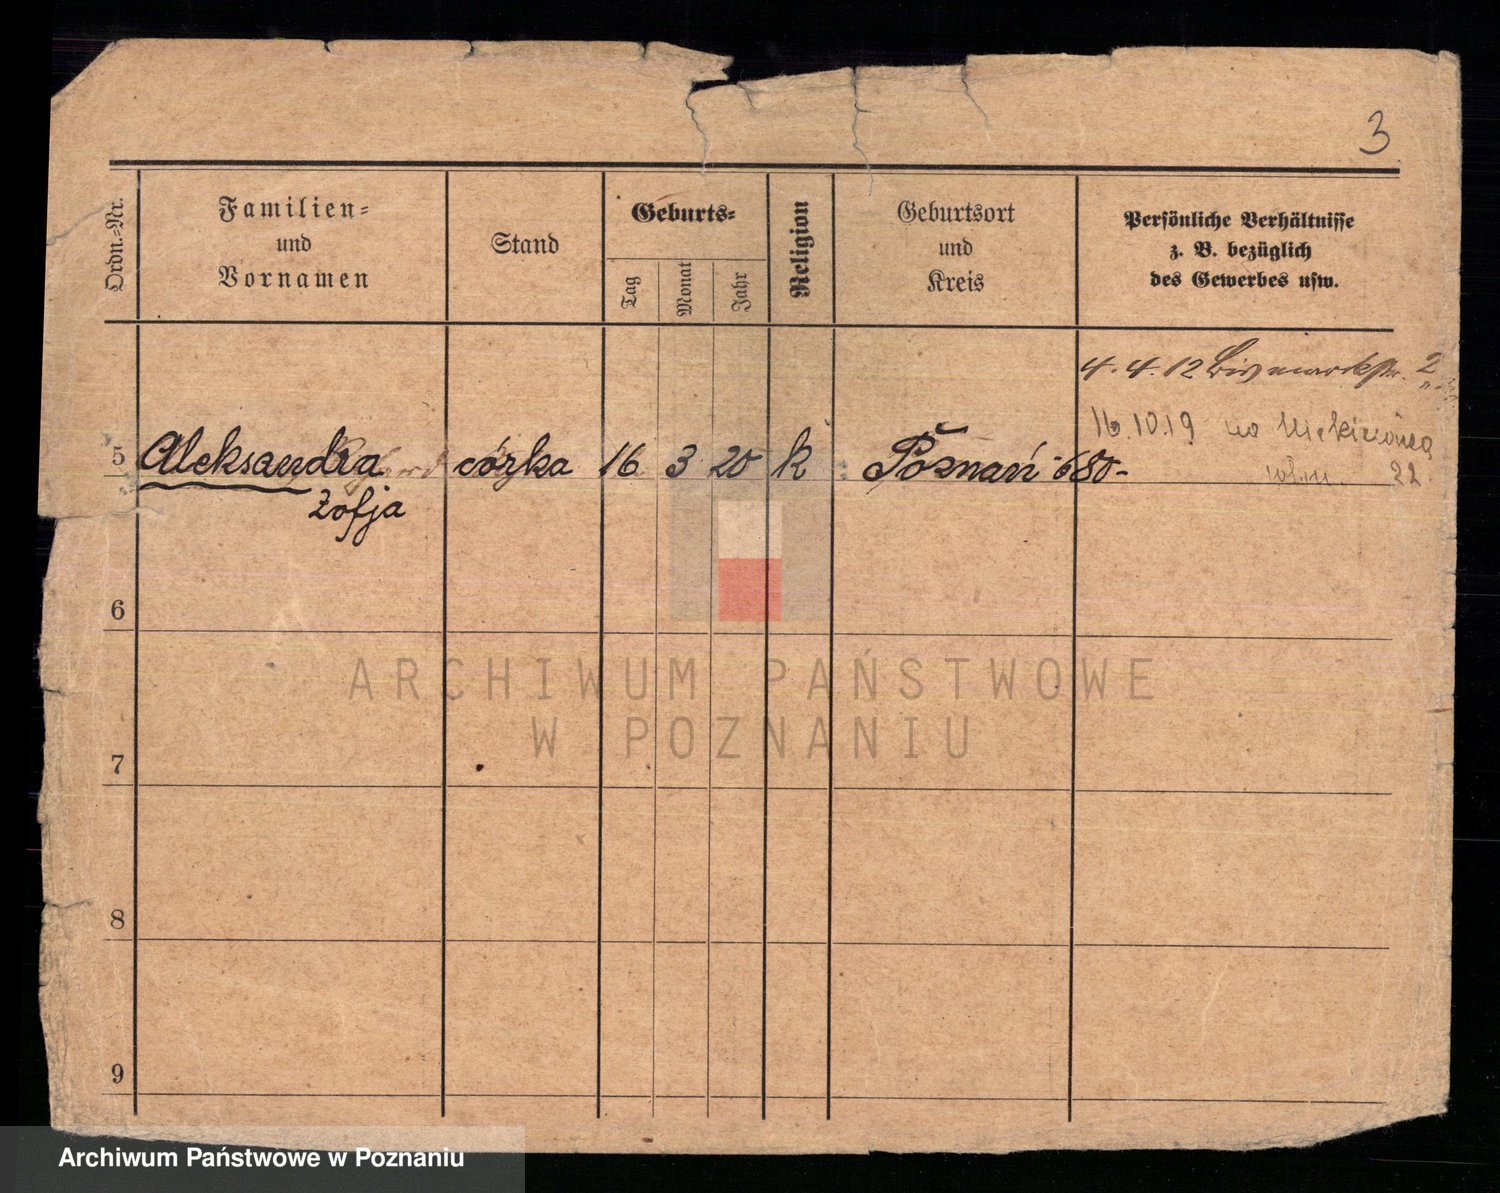 3
Ordn.-Nr.
Familien-
und
Vornamen
Stand
Geburts-
Tag
Monat
Jahr
Religion
Geburtsort
und
Kreis
Persönliche Verhältnisse
z. B. bezüglich
des Gewerbes usw.
4. 4. 12 Bismarckstr. 2
16.10.19
5 Aleksandra córka 16 3 20 k Poznań 680-
22.
Zofja
6
7
8
9
ARCHIWUM PAŃSTWOWE
W POZNANIU
Archiwum Państwowe w Poznaniu